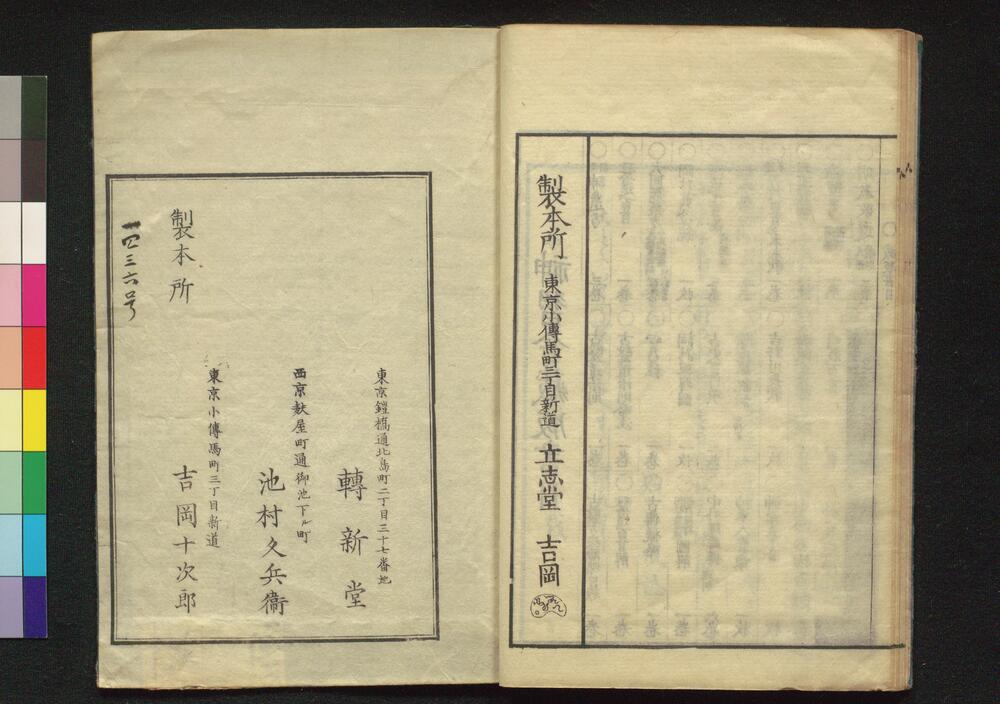 製本所 東京小傳馬町三丁目新道 立志堂 吉岡
東京鎧橋通北島町二丁目三十七番地
轉新堂
西京麩屋町通御池下ル町
池村久兵衞
東京小傳馬町三丁目新道
吉岡十次郎
製本所
一四三六号